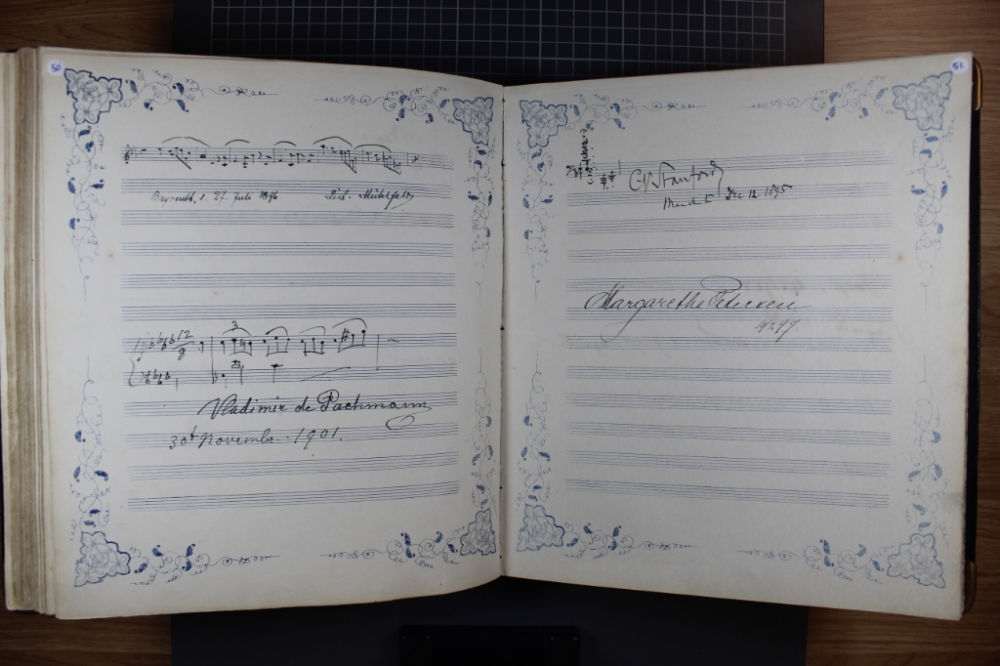 50
Bayreuth, d. 27. Juli 1896 Rich. Mühlfeld
12
8
3
Vladimir de Pachmann
30th November 1901.
51
CVStanford
Dec 12. 1895
Margarethe Petersen
1897